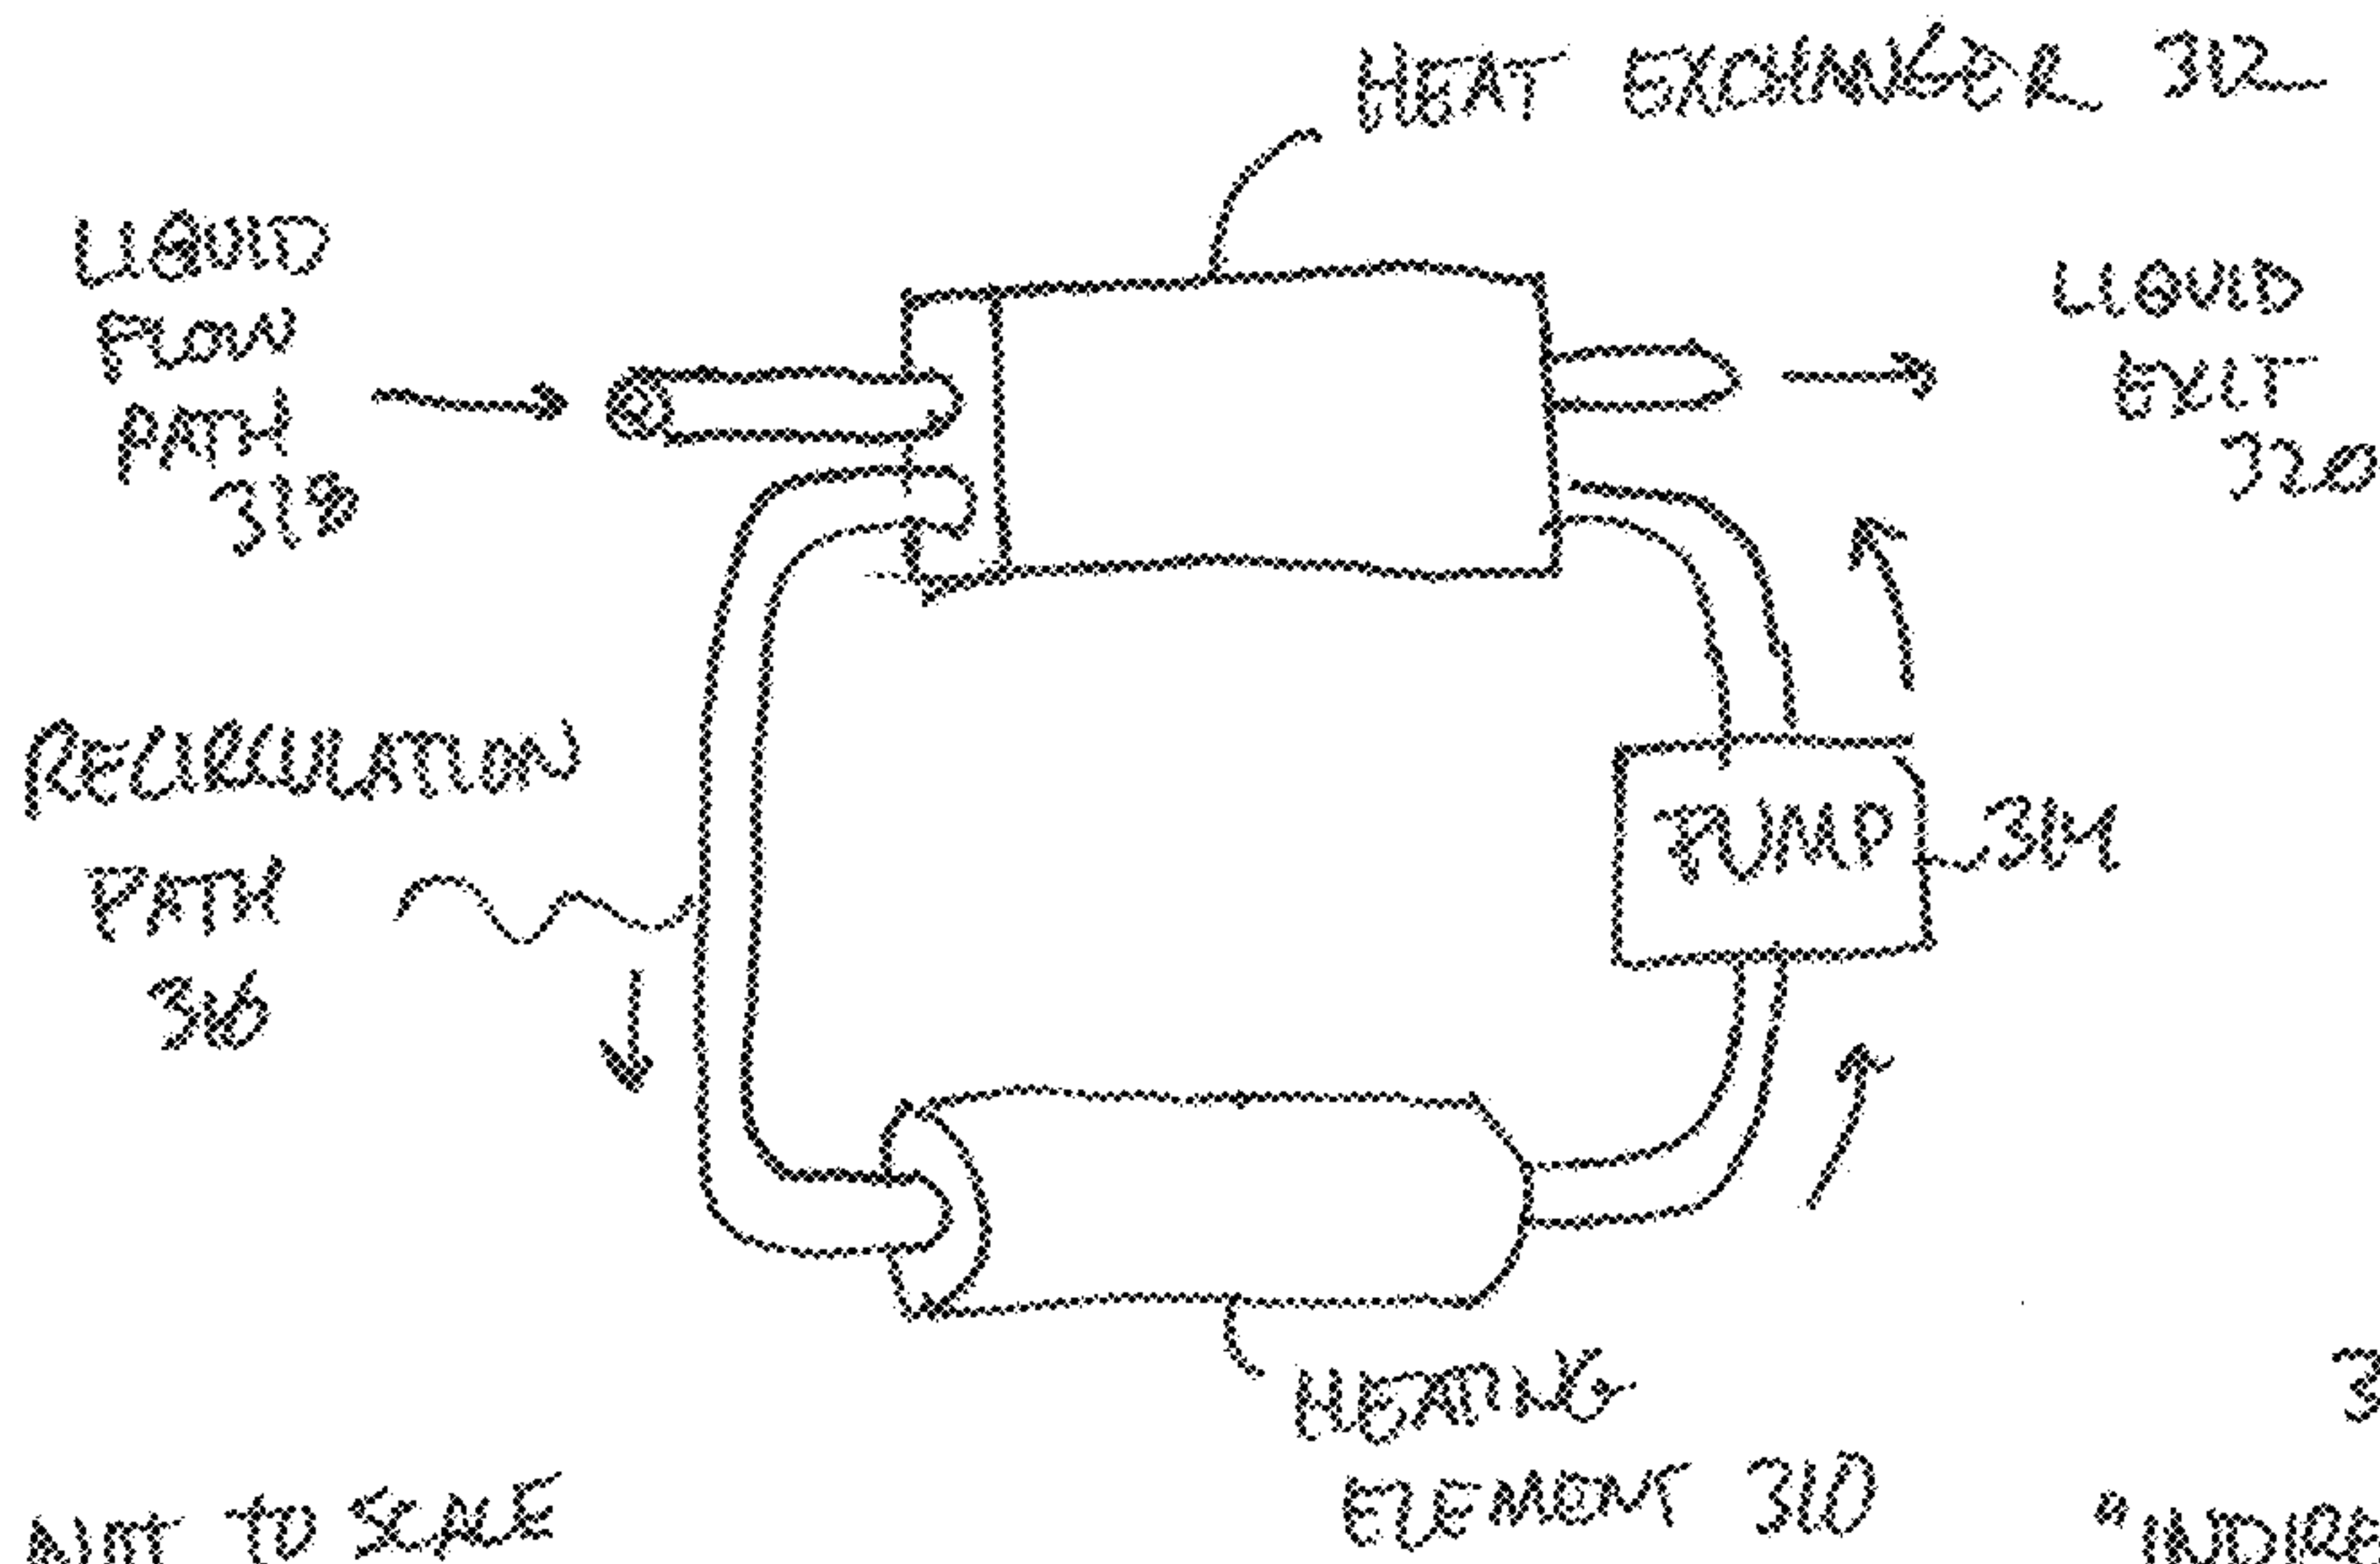 HEAT EXCHANGER 312
LIQUID
FLOW
PATH
318
LIQUID
EXIT
320
RECIRCULATION
PATH
316
PUMP 314
HEATING
ELEMENT 310
3
NOT TO SCALE
"INDIRE